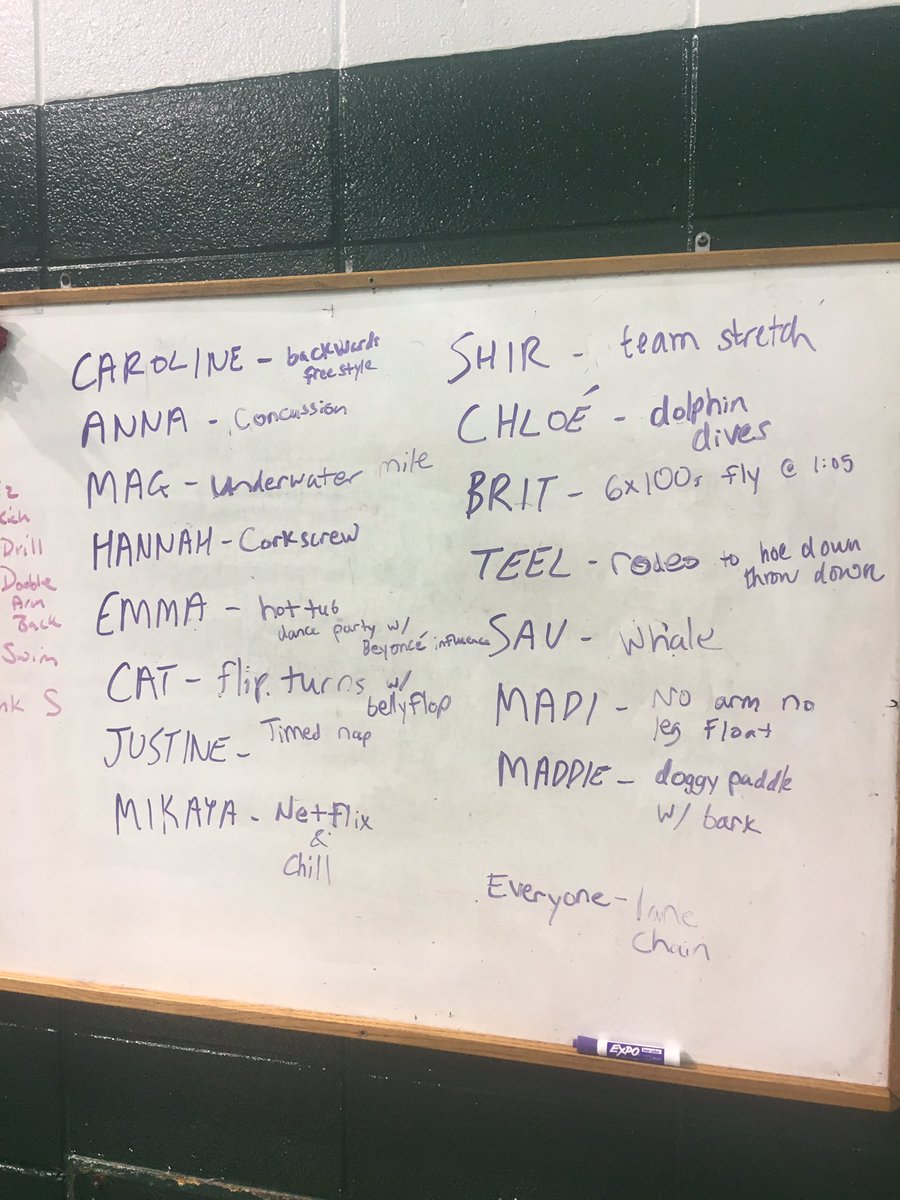 CAROLINE - backwards
freestyle
ANNA - Concussion
MAG - underwater mile
HANNAH - Corkscrew
EMMA - hot tub
dance party w/
Beyoncé influence
CAT - flip turns w/
bellyflop
JUSTINE - Timed nap
MIKAYA - Netflix
&
Chill
SHIR - team stretch
CHLOÉ - dolphin
dives
BRIT - 6x100s fly @ 1:05
TEEL - rodeo to hoe down
throw down
SAV - Whale
MADI - No arm no
leg float
MADDIE - doggy paddle
w/ bark
Everyone - lane
Chain
Drill
Double
Arm
Back
Swim
S
EXPO